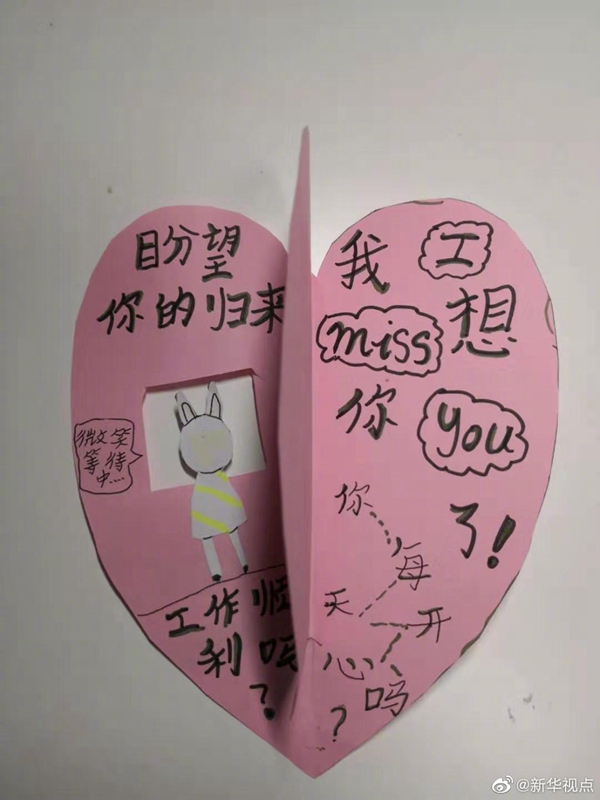 盼望
你的归来
微笑
等待
中....
工作顺
利吗
?
我 I
miss 想
你 you
了!
你
每
天 开
心 吗
?
@新华视点